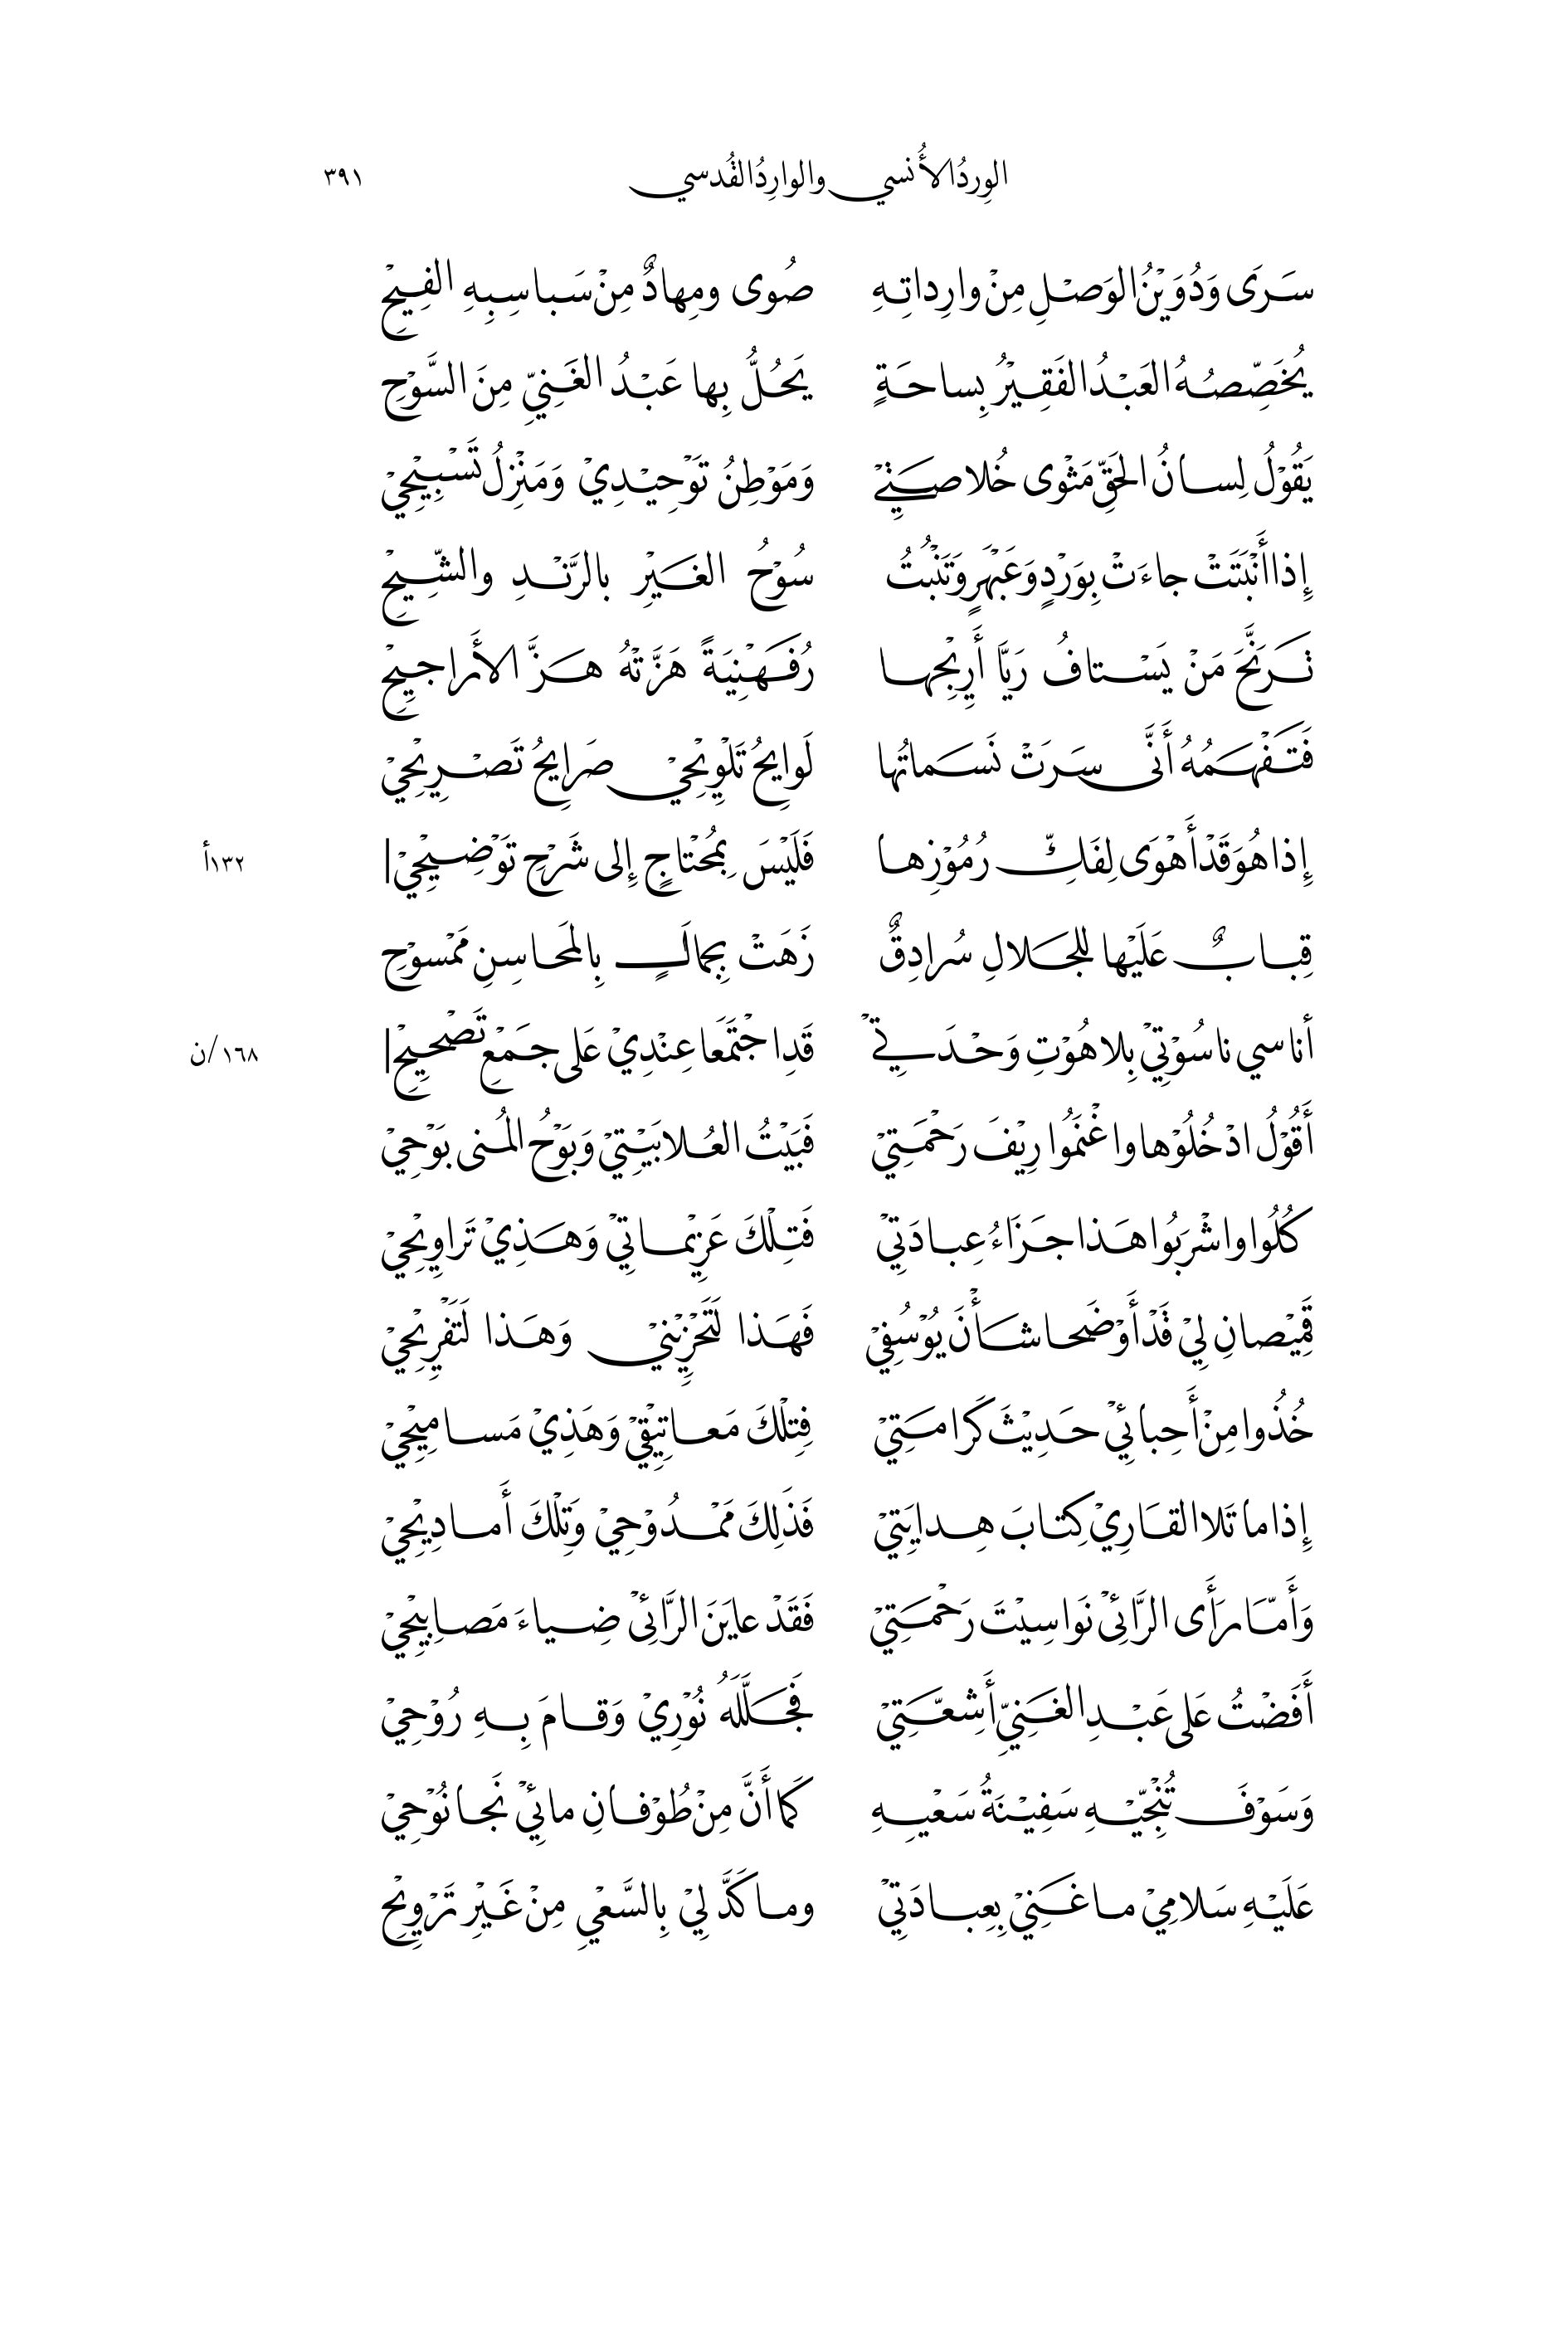 الوِردُ الأُنسي والوارِدُ القُدسي ٣٩١
سَرَى وَدُوَيْنُ الوَصْلِ مِنْ وارِداتِهِ صُوى ومِهادٌ مِنْ سَباسِبِهِ الفِيْحِ
يُخَصِّصُهُ العَبْدُ الفَقِيْرُ بِساحَةٍ يَحُلُّ بِها عَبْدُ الغَنِيِّ مِنَ السَّوْحِ
يَقُوْلُ لِسانُ الحَقِّ مَثْوى خُلاصَتِيْ وَمَوْطِنُ تَوْحِيْدِيْ وَمَنْزِلُ تَسْبِيْحِيْ
إِذا أَنْبَتَتْ جاءَتْ بِوَرْدٍ وَعَبْهَرٍ وَتَنْبُتُ سُوْحُ الغَيْرِ بالرَّنْدِ والشِّيْحِ
تَرَنَّحَ مَنْ يَسْتافُ رَيَّا أَرِيْجِها رُفَهْنِيَةً هَزَّتْهُ هَزَّ الأَراجِيْحِ
فَتَفْهَمُهُ أَنَّى سَرَتْ نَسَماتُها لَوايِحُ تَلْوِيْحِيْ صَرايِحُ تَصْرِيْحِيْ
إِذا هُوَ قَدْ أَهْوَى لِفَكِّ رُمُوْزِها فَلَيْسَ بِمُحْتاجٍ إِلى شَرْحِ تَوْضِيْحِيْ| ١٣٢أ
قِبابٌ عَلَيْها للجَلالِ سُرادِقٌ زَهَتْ بِجَمالٍ بِالمَحاسِنِ مَمْسوْحِ
أناسي ناسُوْتِيْ بِلاهُوْتِ وَحْدَتِيْ قَدِ اجْتَمَعَا عِنْدِيْ عَلى جَمْعِ تَصْحِيْحِ| ١٦٨/ن
أَقُوْلُ ادْخُلُوْها واغْنَمُوا رِيْفَ رَحْمَتِيْ فَبَيْتُ العُلا بَيْتِيْ وَبَوْحُ المُنى بَوْحِيْ
كُلُوا واشْرَبُوا هَذا جَزَاءُ عِبادَتِيْ فَتِلْكَ عَزِيْماتِيْ وَهَذِيْ تَراوِيْحِيْ
قَمِيْصانِ لِيْ قَدْ أَوْضَحا شَأْنَ يُوْسُفِيْ فَهَذا لَتَحْزِيْنيْ وَهَذا لَتَفْرِيْحِيْ
خُذُوا مِنْ أَحِبائِيْ حَدِيْثَ كَرامَتِيْ فِتِلْكَ مَعاتِيْقِيْ وَهَذِيْ مَسامِيْحِيْ
إِذا ما تَلا القَارِيْ كِتابَ هِدايَتِيْ فَذَلِكَ مَمْدُوْحِيْ وَتِلْكَ أَمادِيْحِيْ
وَأَمّا رَأَى الرَّائِيْ نَواسِيْتَ رَحْمَتِيْ فَقَدْ عايَنَ الرَّائِيْ ضِياءَ مَصابِيْحِيْ
أَفَضْتُ عَلى عَبْدِ الغَنِيِّ أَشِعَّتِيْ فَجَلَّلَهُ نُوْرِيْ وَقامَ بِهِ رُوْحِيْ
وَسَوْفَ تُنْجِيّهِ سَفِيْنَةُ سَعْيِهِ كَما أَنَّ مِنْ طُوْفانِ مائِيْ نَجا نُوْحِيْ
عَلَيْهِ سَلامِيْ ما غَنِيْ بِعِبادَتِيْ وما كَدَّ لِيْ بِالسَّعْيِ مِنْ غَيْرِ تَرْوِيْحِ